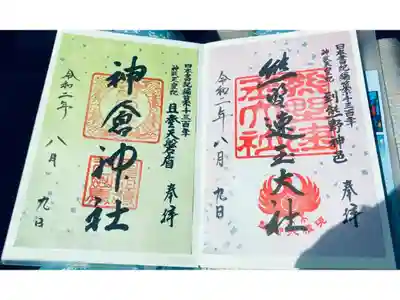 奉拝
日本書紀編纂千三百年
神武天皇紀
到熊野神邑
熊野速玉大社
令和二年八月九日
奉拝
日本書紀編纂千三百年
神武天皇紀
且登天磐盾
神倉神社
令和二年八月九日